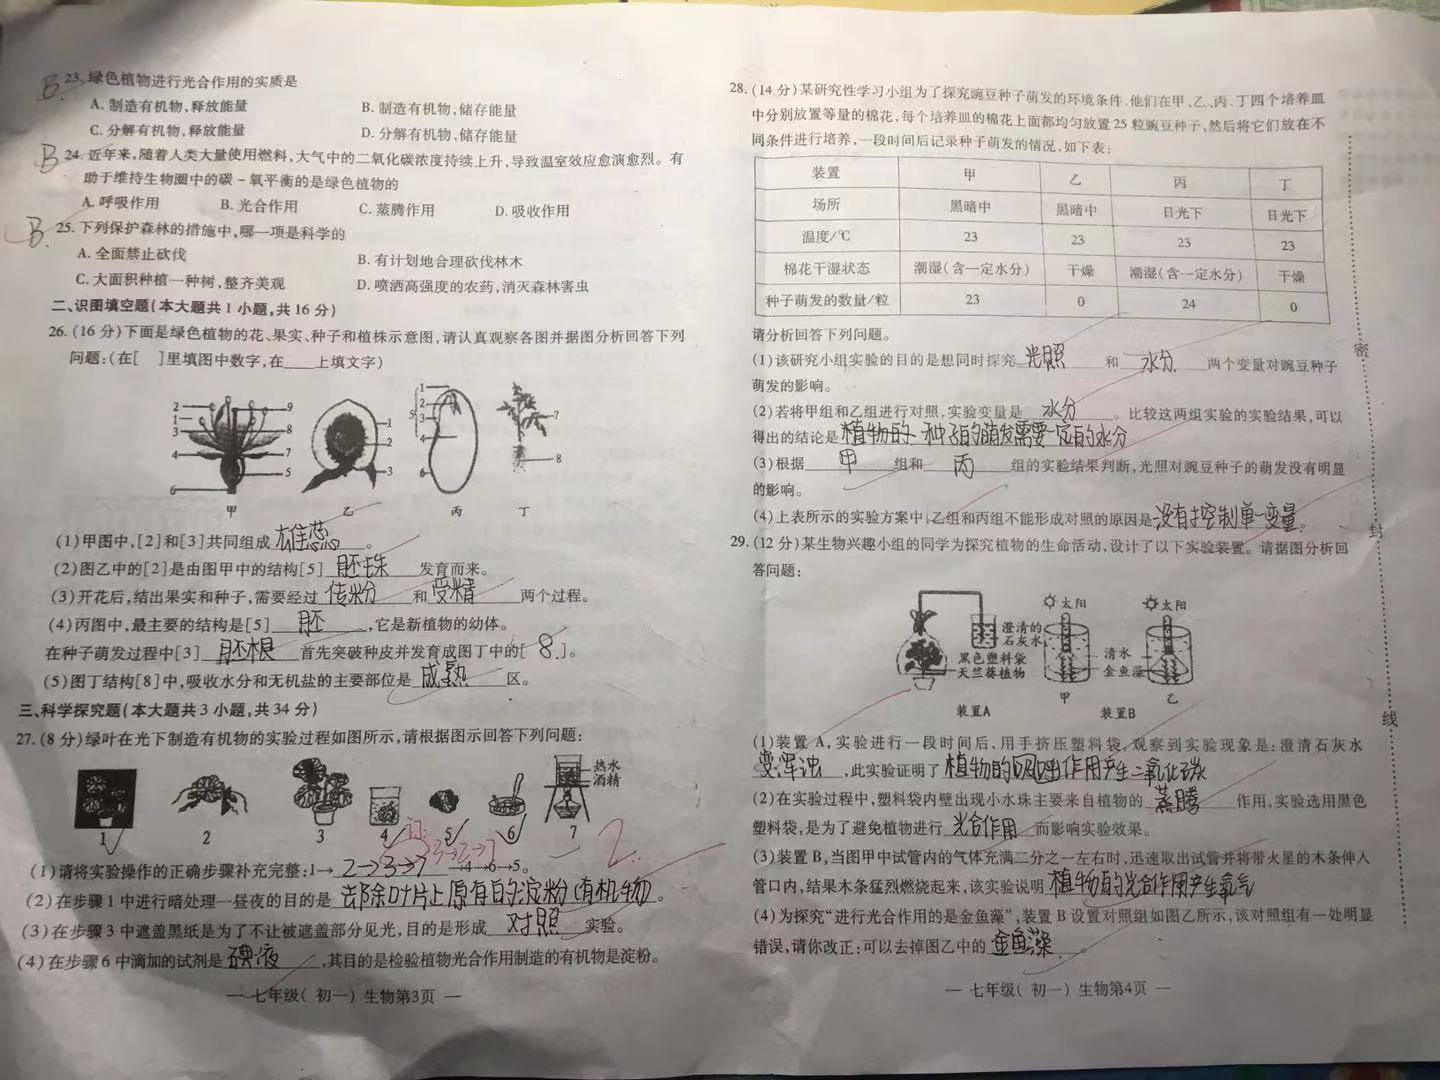 B. 23. 绿色植物进行光合作用的实质是
A. 制造有机物,释放能量 B. 制造有机物,储存能量
C. 分解有机物,释放能量 D. 分解有机物,储存能量
B 24. 近年来,随着人类大量使用燃料,大气中的二氧化碳浓度持续上升,导致温室效应愈演愈烈。有
助于维持生物圈中的碳-氧平衡的是绿色植物的
A. 呼吸作用 B. 光合作用 C. 蒸腾作用 D. 吸收作用
B. 25. 下列保护森林的措施中,哪一项是科学的
A. 全面禁止砍伐 B. 有计划地合理砍伐林木
C. 大面积种植一种树,整齐美观 D. 喷洒高强度的农药,消灭森林害虫
二、识图填空题(本大题共1小题,共16分)
26. (16分)下面是绿色植物的花、果实、种子和植株示意图,请认真观察各图并据图分析回答下列
问题:(在[ ]里填图中数字,在____上填文字)
2 1 3 4 6 9 8 7 5
1 2 3
1 2 3 4 5 6
7 8
甲 乙 丙 丁
(1)甲图中,[2]和[3]共同组成 雄蕊 。
(2)图乙中的[2]是由图甲中的结构[5] 胚珠 发育而来。
(3)开花后,结出果实和种子,需要经过 传粉 和 受精 两个过程。
(4)丙图中,最主要的结构是[5] 胚 ,它是新植物的幼体。
在种子萌发过程中[3] 胚根 首先突破种皮并发育成图丁中的[ 8 ]。
(5)图丁结构[8]中,吸收水分和无机盐的主要部位是 成熟 区。
三、科学探究题(本大题共3小题,共34分)
27. (8分)绿叶在光下制造有机物的实验过程如图所示,请根据图示回答下列问题:
热水
酒精
1 2 3 4 5 6 7
订: 3→2→7
2
(1)请将实验操作的正确步骤补充完整:1→ 2→3→7 →4→6→5。
(2)在步骤1中进行暗处理一昼夜的目的是 去除叶片上原有的淀粉(有机物) 。
(3)在步骤3中遮盖黑纸是为了不让被遮盖部分见光,目的是形成 对照 实验。
(4)在步骤6中滴加的试剂是 碘液 ,其目的是检验植物光合作用制造的有机物是淀粉。
— 七年级(初一)生物第3页 —
28. (14分)某研究性学习小组为了探究豌豆种子萌发的环境条件,他们在甲、乙、丙、丁四个培养皿
中分别放置等量的棉花,每个培养皿的棉花上面都均匀放置25粒豌豆种子,然后将它们放在不
同条件进行培养,一段时间后记录种子萌发的情况,如下表:
装置 甲 乙 丙 丁
场所 黑暗中 黑暗中 日光下 日光下
温度/℃ 23 23 23 23
棉花干湿状态 潮湿(含一定水分) 干燥 潮湿(含一定水分) 干燥
种子萌发的数量/粒 23 0 24 0
请分析回答下列问题。
(1)该研究小组实验的目的是想同时探究 光照 和 水分 两个变量对豌豆种子
萌发的影响。
(2)若将甲组和乙组进行对照,实验变量是 水分 。比较这两组实验的实验结果,可以
得出的结论是 植物的种子的萌发需要一定的水分
(3)根据 甲 组和 丙 组的实验结果判断,光照对豌豆种子的萌发没有明显
的影响。
(4)上表所示的实验方案中,乙组和丙组不能形成对照的原因是 没有控制单一变量 。
29. (12分)某生物兴趣小组的同学为探究植物的生命活动,设计了以下实验装置。请据图分析回
答问题:
澄清的
石灰水
黑色塑料袋
天竺葵植物
太阳 太阳
清水
金鱼藻
甲 乙
装置A 装置B
(1)装置A,实验进行一段时间后,用手挤压塑料袋,观察到实验现象是:澄清石灰水
变浑浊 ,此实验证明了 植物的呼吸作用产生二氧化碳
(2)在实验过程中,塑料袋内壁出现小水珠主要来自植物的 蒸腾 作用,实验选用黑色
塑料袋,是为了避免植物进行 光合作用 而影响实验效果。
(3)装置B,当图甲中试管内的气体充满二分之一左右时,迅速取出试管并将带火星的木条伸入
管口内,结果木条猛烈燃烧起来,该实验说明 植物的光合作用产生氧气
(4)为探究“进行光合作用的是金鱼藻”,装置B设置对照组如图乙所示,该对照组有一处明显
错误,请你改正:可以去掉图乙中的 金鱼藻 。
— 七年级(初一)生物第4页 —
密
封
线